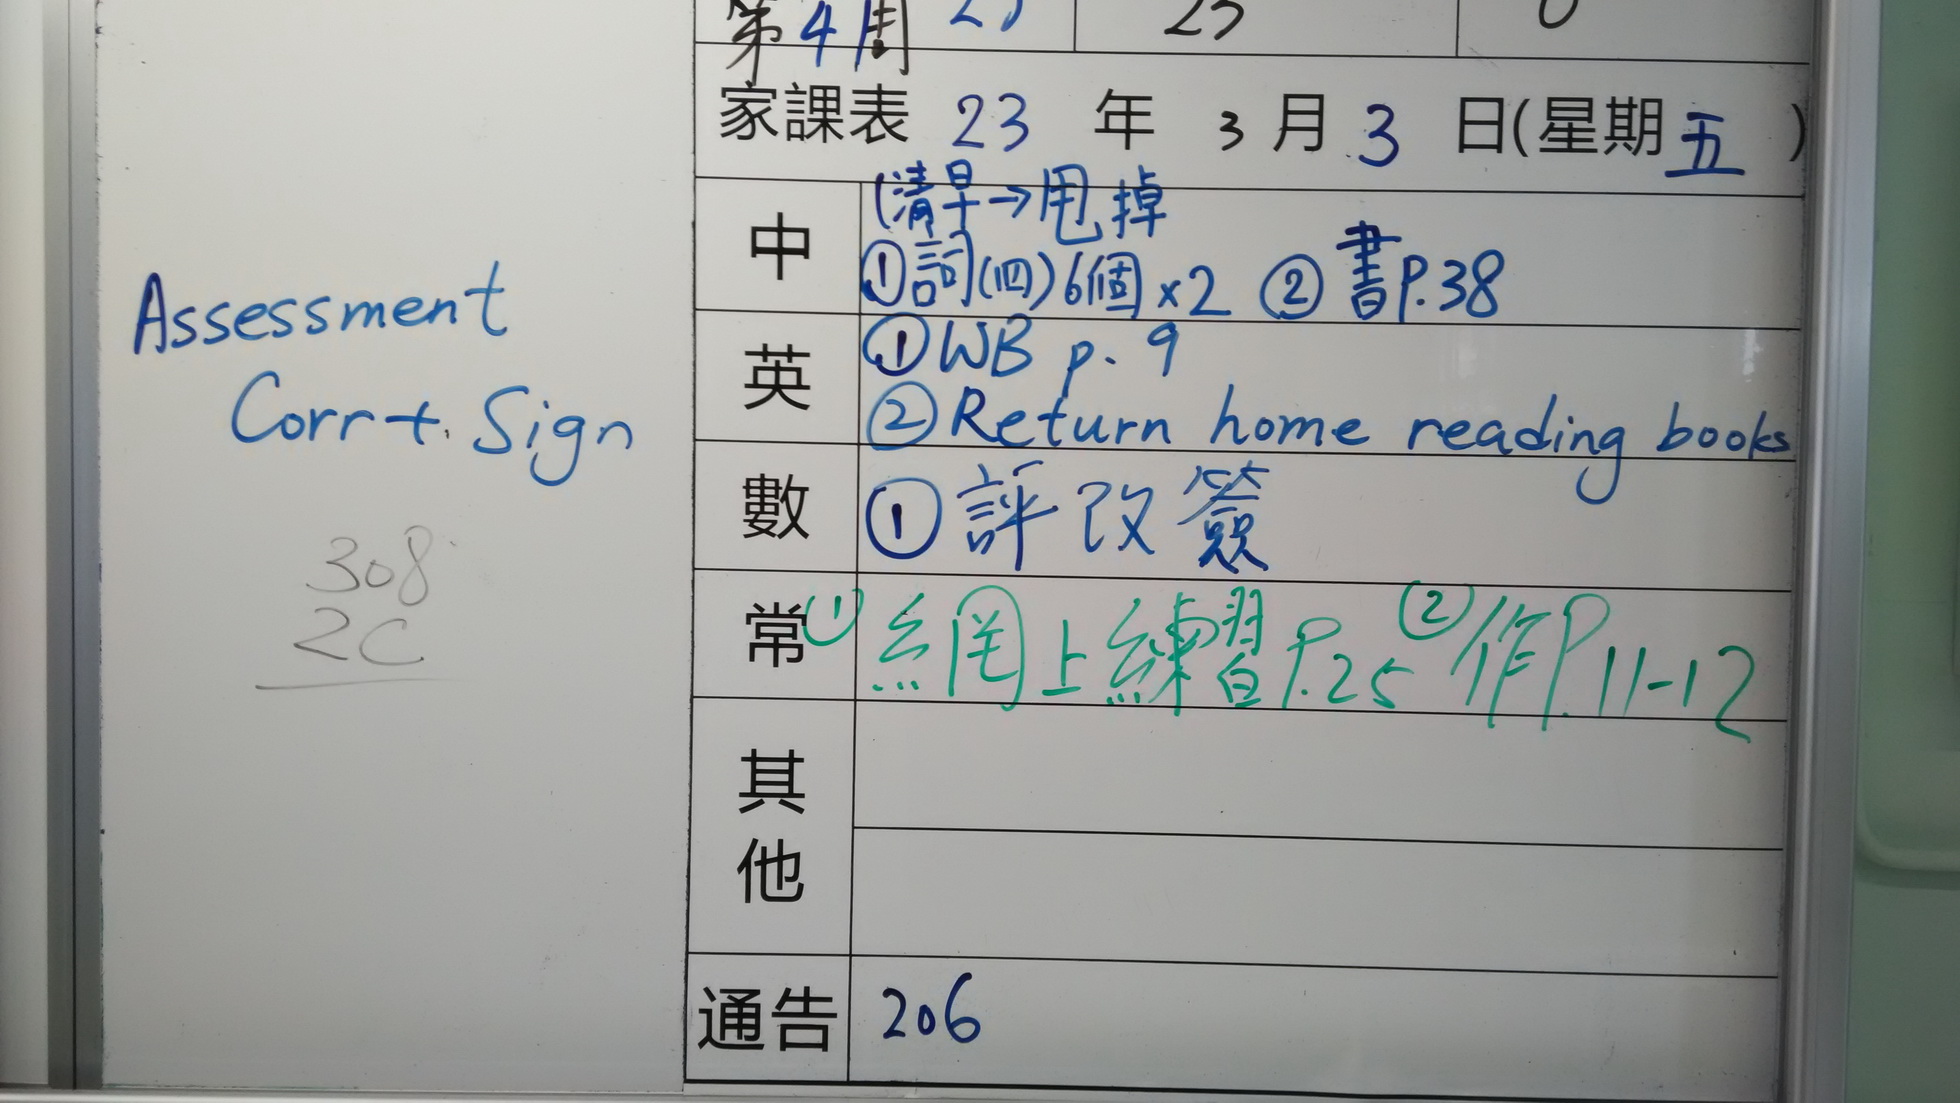 第4周 25 25 0
家課表 23 年 3 月 3 日(星期五)
中
(清早→甩掉
①詞(四)6個×2 ②書P.38
英
①WB p.9
②Return home reading books
數
①評改簽
常
①網上練習P.25 ②作P.11-12
其他
通告 206
Assessment
Corr+. Sign
308
2C